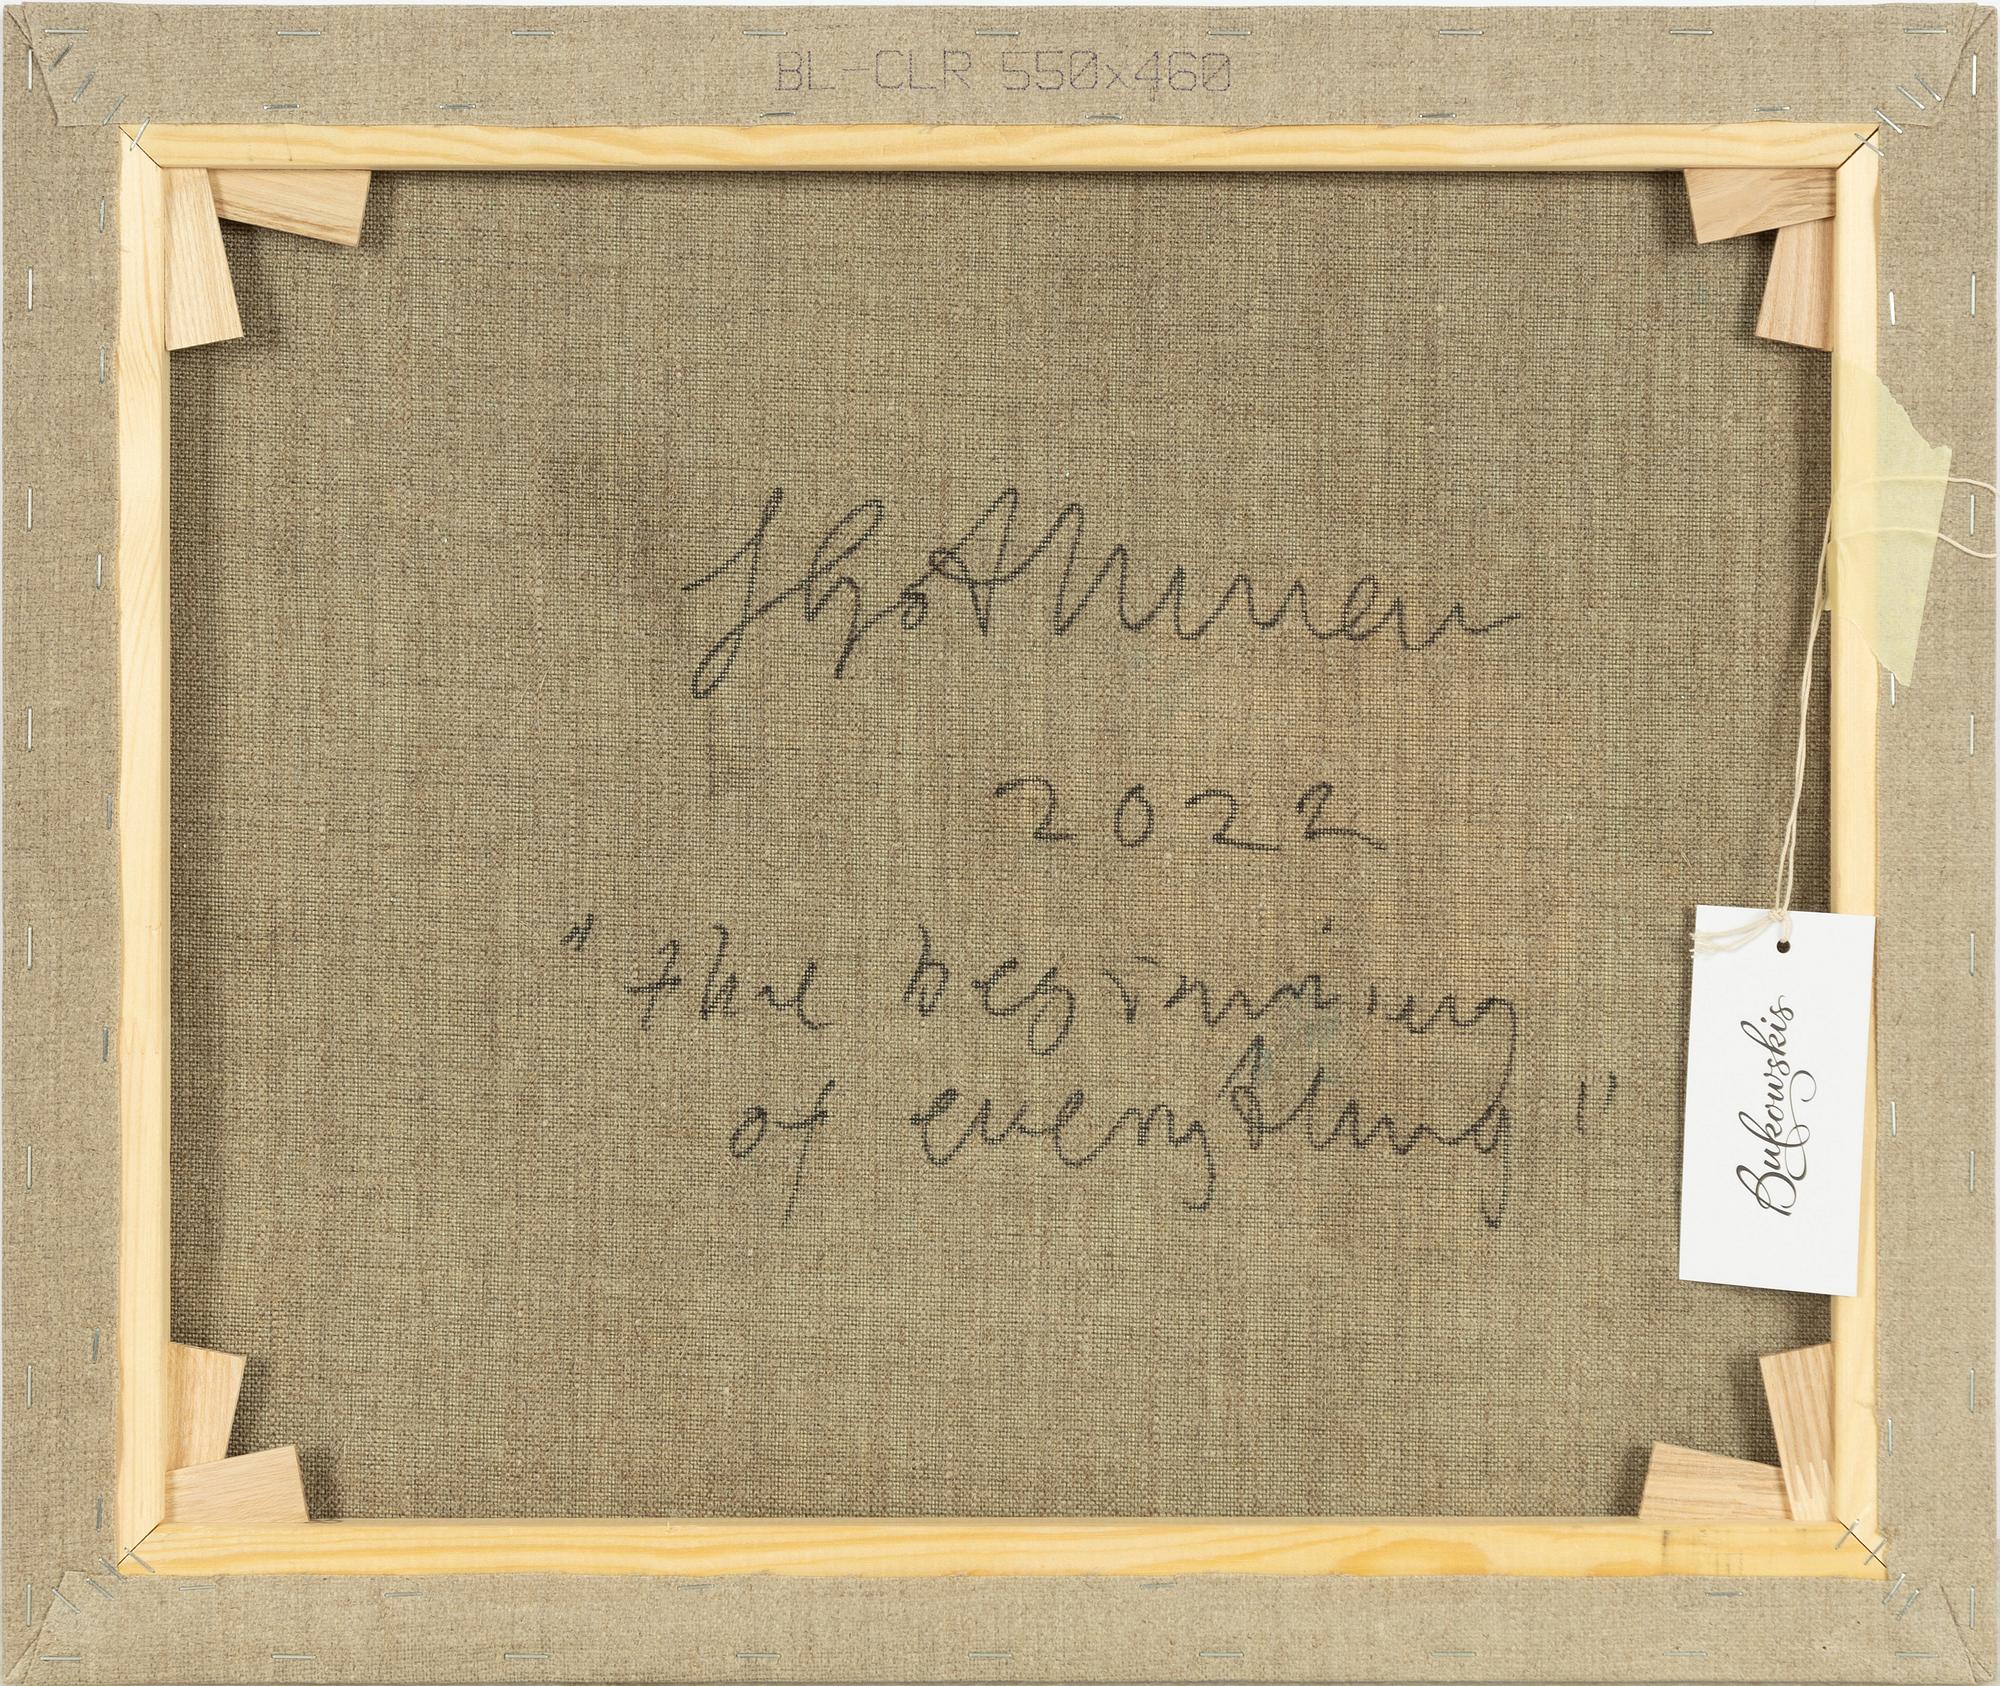 BL-CLR 550x460
2022
"the beginning
of everything"
Bukowskis